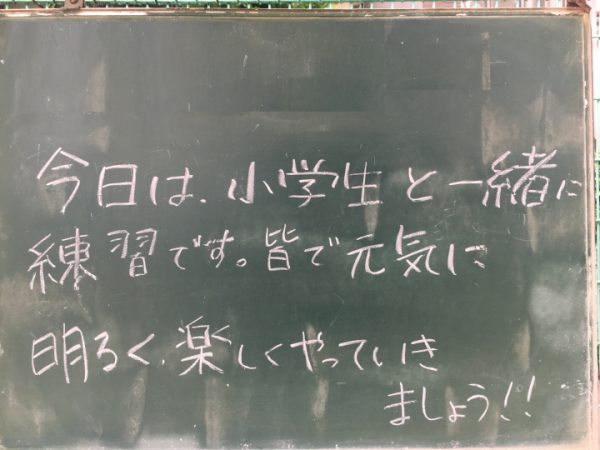 今日は、小学生と一緒に
練習です。皆で元気に
明るく、楽しくやっていき
ましょう!!